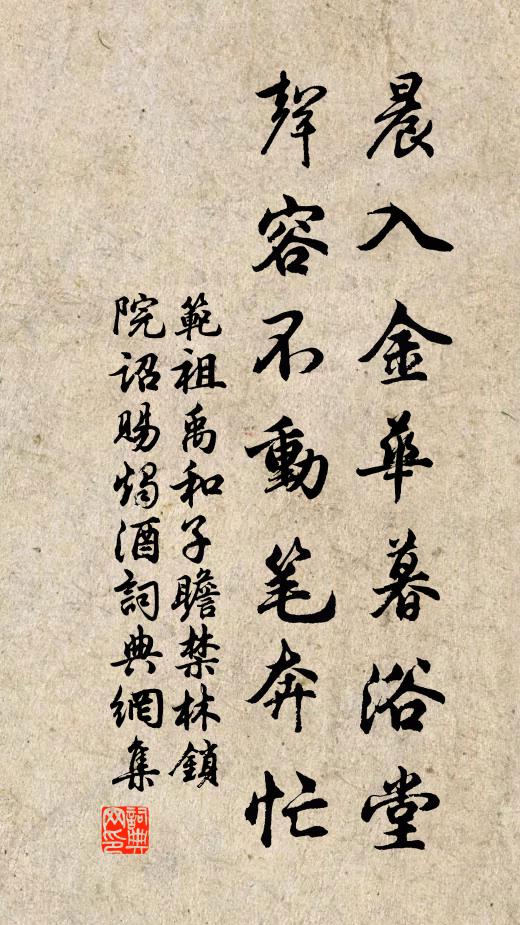 晨入金華暮浴堂
聲容不動笔奔忙
範祖禹和子瞻禁林鎖
院詔賜燭酒詞典網集
詞典网印